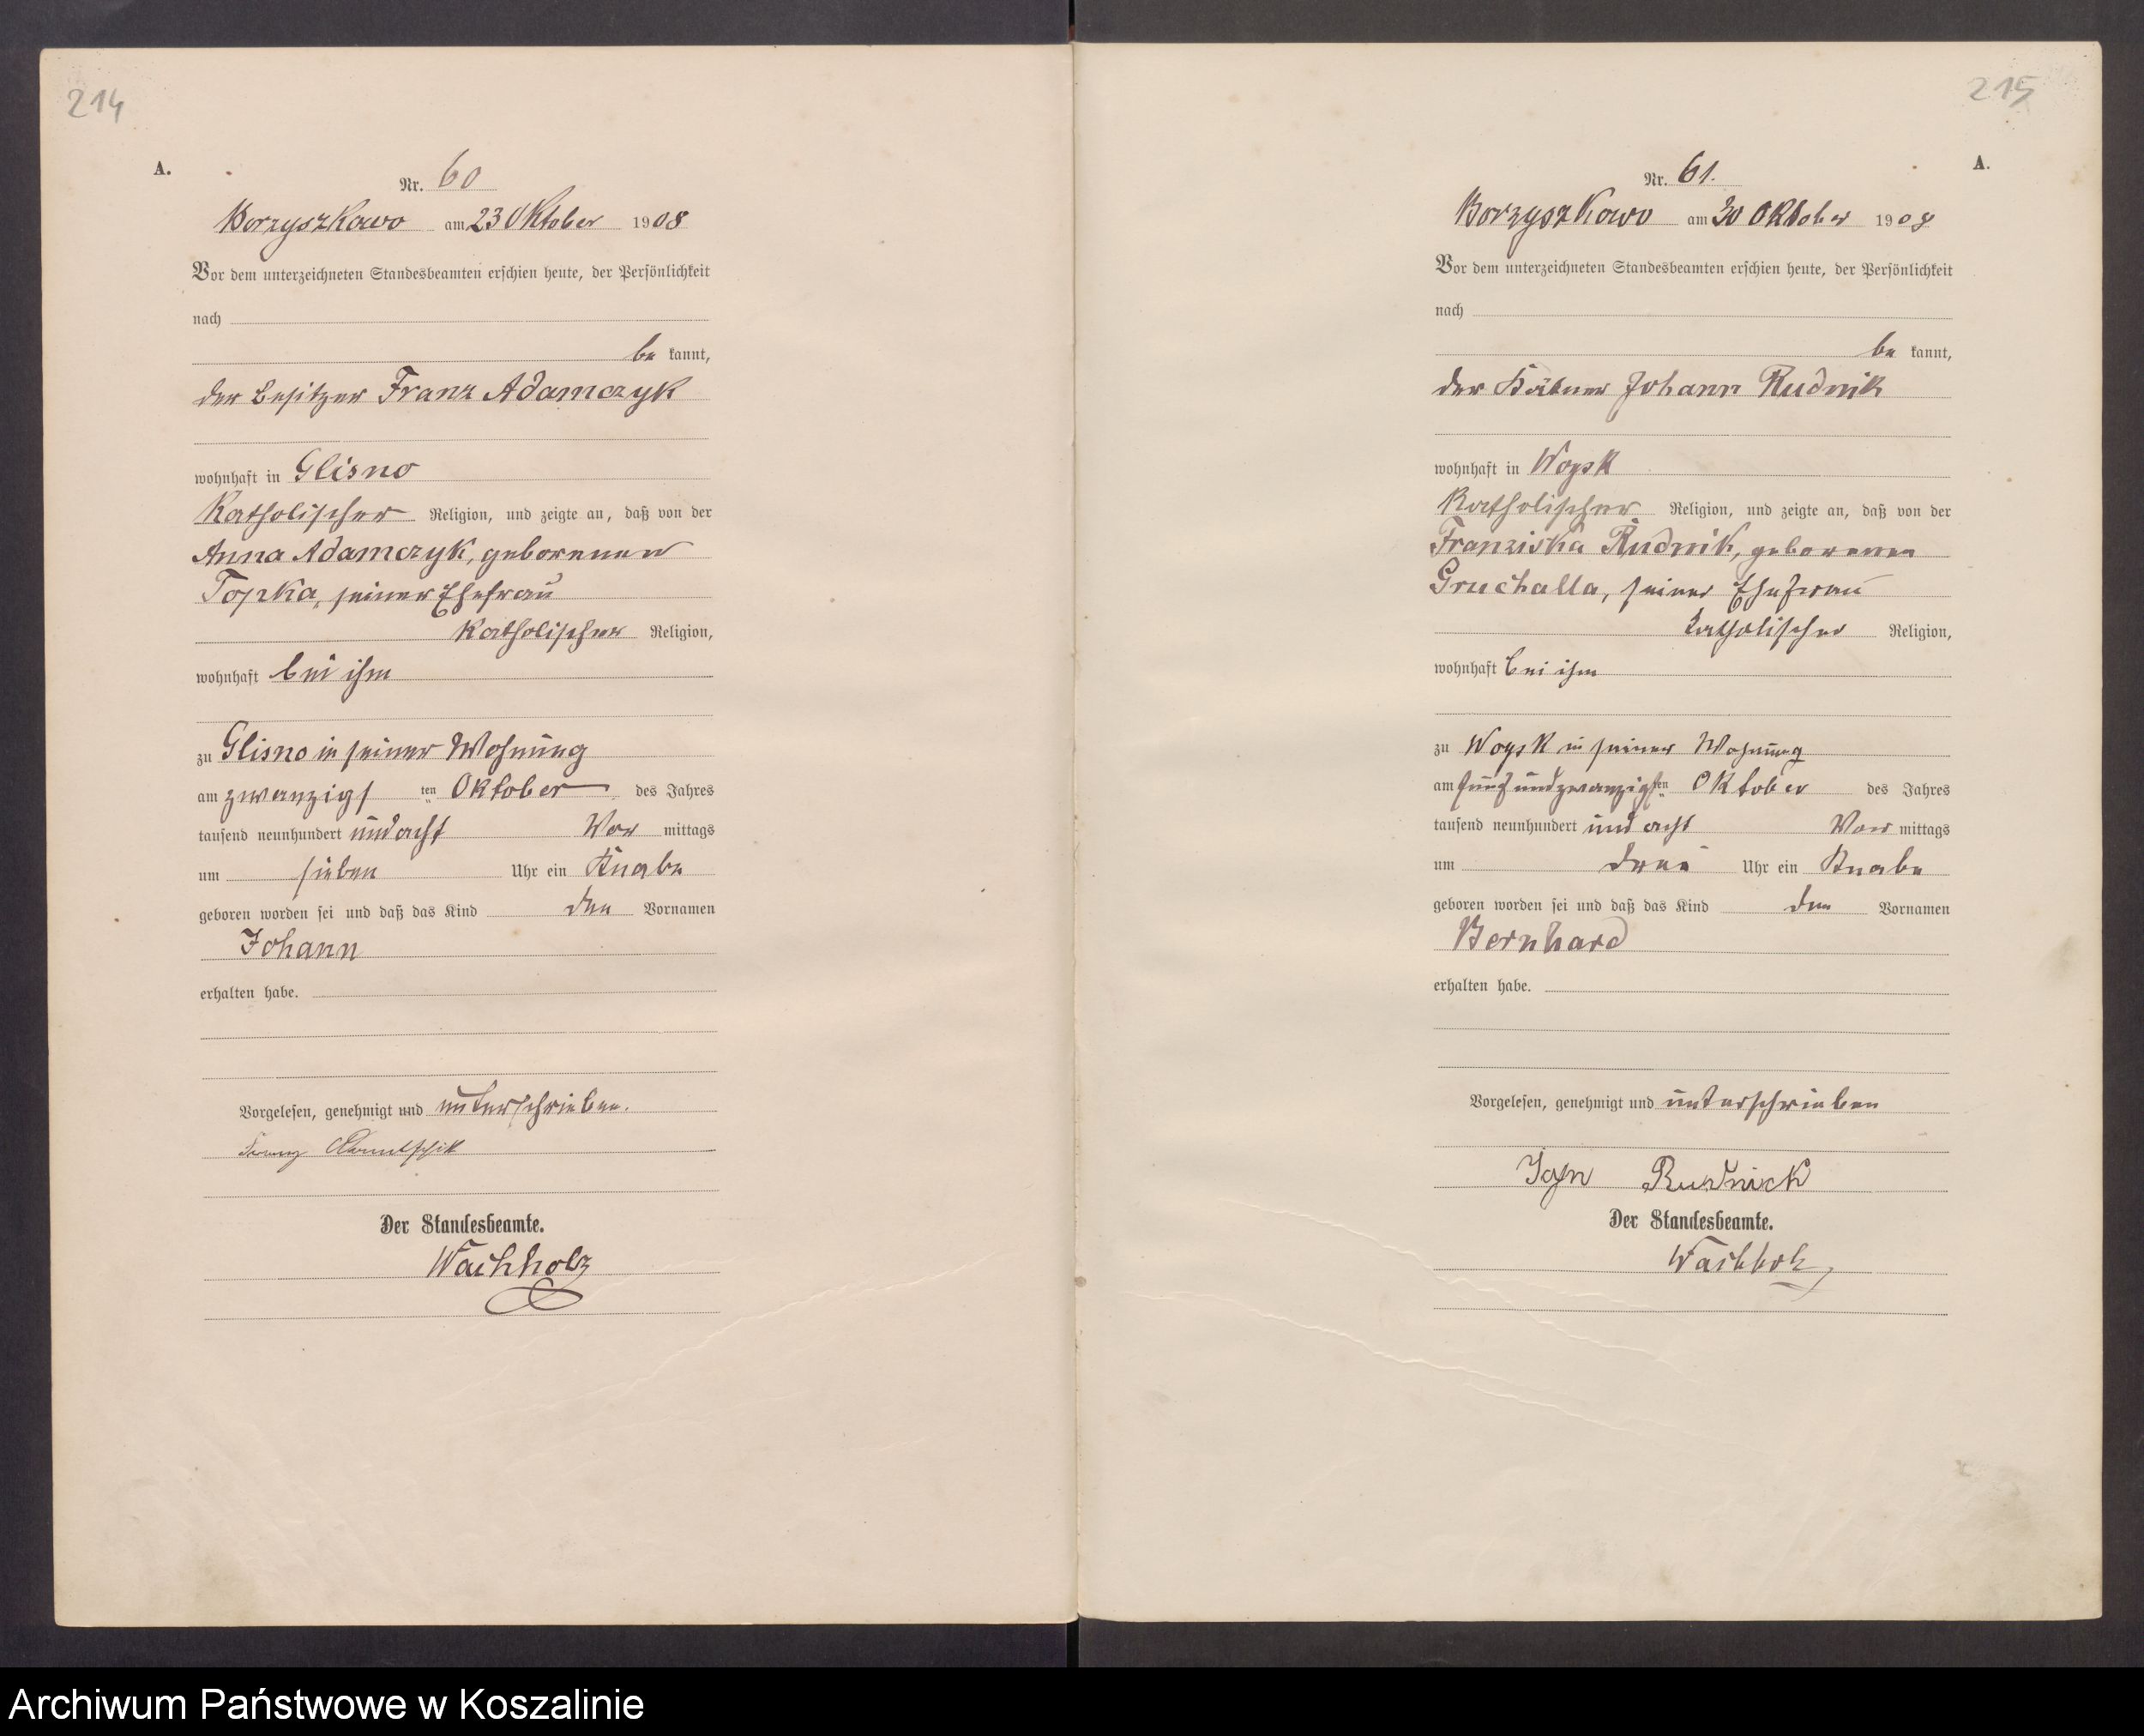 214
A.
Nr. 60
Borzyszkowo am 23 Oktober 1908
Vor dem unterzeichneten Standesbeamten erschien heute, der Persönlichkeit
nach
be kannt,
der Besitzer Franz Adamczyk
wohnhaft in Glisno
Katholischer Religion, und zeigte an, daß von der
Anna Adamczyk, geborenen
Topka, seiner Ehefrau
Katholischer Religion,
wohnhaft bei ihm
zu Glisno in seiner Wohnung
am zwanzigsten Oktober des Jahres
tausend neunhundert und acht Vor mittags
um sieben Uhr ein Knabe
geboren worden sei und daß das Kind den Vornamen
Johann
erhalten habe.
Vorgelesen, genehmigt und unterschrieben.
Franz
Der Standesbeamte.
Wachholz
215
A.
Nr. 61.
Borzyszkowo am 30 Oktober 1908
Vor dem unterzeichneten Standesbeamten erschien heute, der Persönlichkeit
nach
be kannt,
der Käthner Johann Rudnik
wohnhaft in Woysk
Katholischer Religion, und zeigte an, daß von der
Franziska Rudnik, geborenen
Gruchalla, seiner Ehefrau
katholischer Religion,
wohnhaft bei ihm
zu Woysk in seiner Wohnung
am fünfundzwanzigsten Oktober des Jahres
tausend neunhundert und acht Vor mittags
um drei Uhr ein Knabe
geboren worden sei und daß das Kind den Vornamen
Bernhard
erhalten habe.
Vorgelesen, genehmigt und unterschrieben
Jahn Rudnick
Der Standesbeamte.
Wachholz
Archiwum Państwowe w Koszalinie